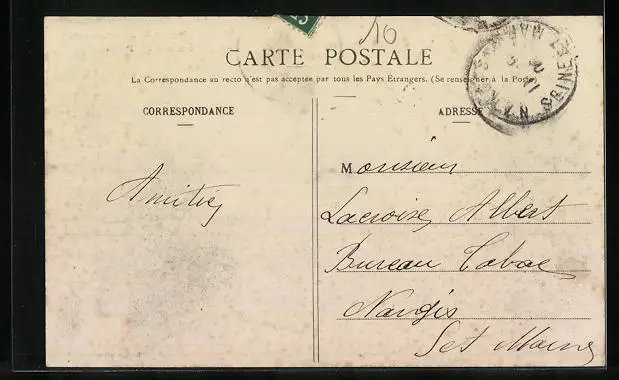 16
CARTE POSTALE
La Correspondance au recto n'est pas acceptée par tous les Pays Etrangers. (Se renseigner à la Poste
CORRESPONDANCE
ADRESSE
Amitiés
Monsieur
Lacroix Albert
Bureau Tabac
Nangis
Set Marne